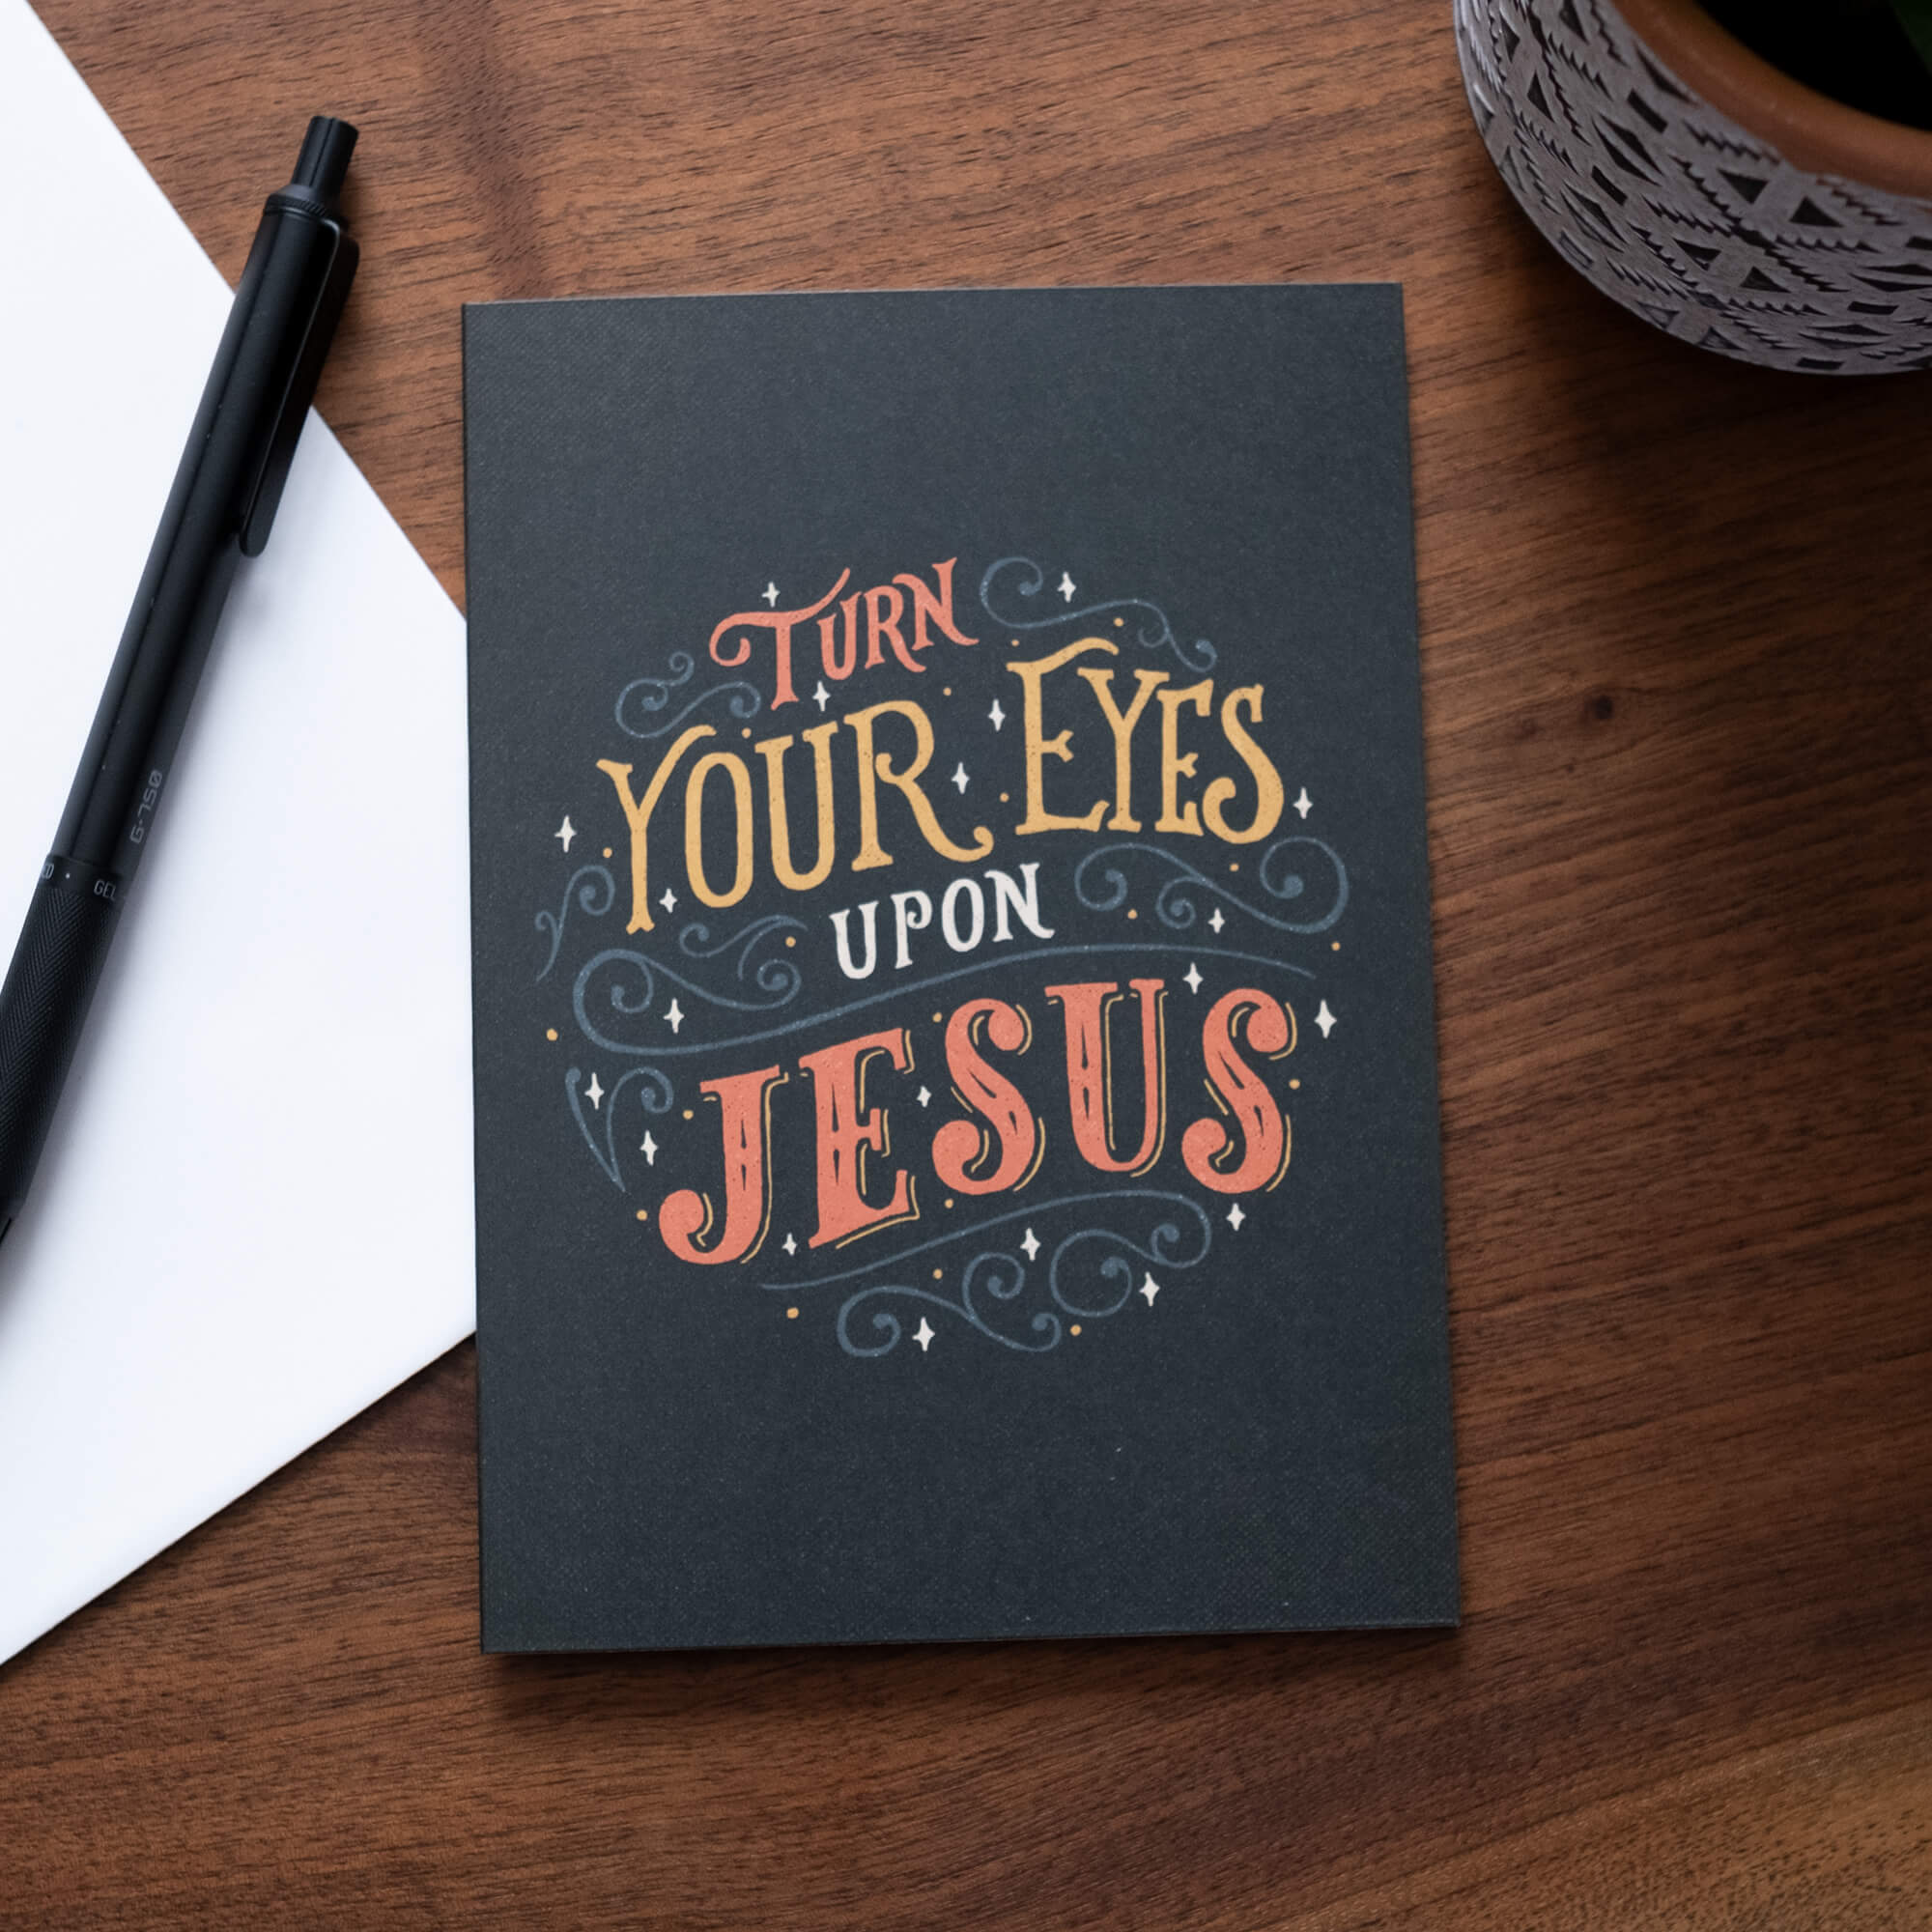 TURN
YOUR EYES
UPON
JESUS
GEL